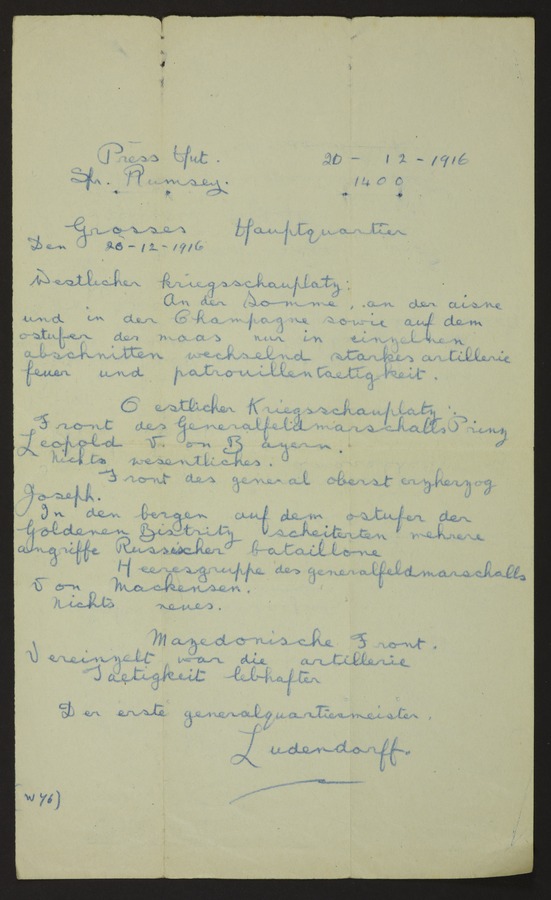 Press Hut. 20 - 12 - 1916
Spr. Rumsey. 1400
Grosses Hauptquartier
Den 20-12-1916
Westlicher kriegsschauplatz:
An der Somme, an der aisne
und in der Champagne sowie auf dem
ostufer der maas nur in einzelnen
abschnitten wechselnd starkes artillerie
feuer und patrouillentaetigkeit.
Oestlicher Kriegsschauplatz:
Front des Generalfeldmarschalls Prinz
Leopold von Bayern.
Nichts wesentliches.
Front des general oberst erzherzog
Joseph.
In den bergen auf dem ostufer der
Goldenen Bistritz scheiterten mehrere
angriffe Russischer bataillone
Heeresgruppe des generalfeldmarschalls
von Mackensen.
Nichts neues.
Mazedonische Front.
Vereinzelt war die artillerie
Taetigkeit lebhafter
Der erste generalquartiermeister.
Ludendorff.
(W46)